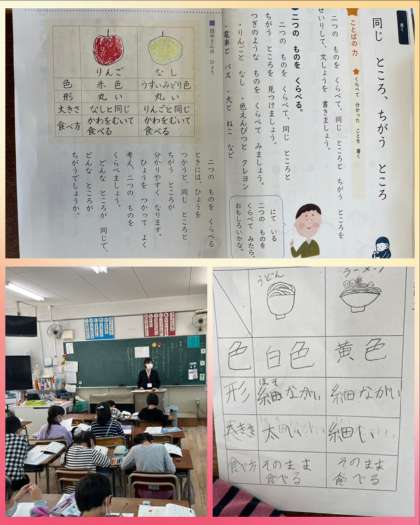 同じ ところ、ちがう ところ
ことばの力
くらべて 分かった ことを 書く
二つの ものを くらべて、同じ ところと ちがう ところを
せいりして、文しょうを 書きましょう。
二つの ものを くらべる。
二つの ものを くらべて、同じ ところと
ちがう ところを 見つけましょう。
つぎのような ものを くらべて みましょう。
・りんごと なし ・色えんぴつと クレヨン
・電車と バス ・犬と ねこ など
にて いる
二つの ものを
くらべて みたら、
おもしろいかな。
りんご なし
色 赤色 うすいみどり色
形 丸い 丸い
大きさ なしと同じ りんごと同じ
食べ方 かわをむいて食べる かわをむいて食べる
二つの ものを くらべる
ときには、ひょうを
つかうと、同じ ところと
ちがう ところが
分かりやすく なります。
ひょうを つかって よく
考え、二つの ものを
くらべましょう。
どんな ところが 同じで、
どんな ところが
ちがうでしょうか。
うどん ラーメン
色 白色 黄色
形 細ながい 細ながい
ほそ
大きさ 太い 細い
食べ方 そのまま食べる そのまま食べる